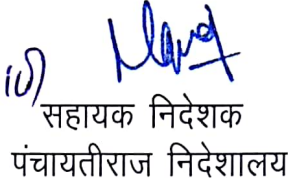 सहायक निदेशक
पंचायतीराज निदेशालय